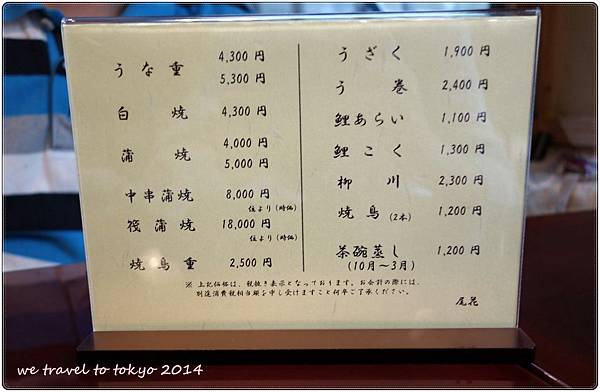 うな重 4,300 円
5,300 円
白焼 4,300 円
蒲焼 4,000 円
5,000 円
中串蒲焼 8,000 円
位より(時価)
筏蒲焼 18,000 円
位より(時価)
焼鳥重 2,500 円
うざく 1,900 円
う巻 2,400 円
鯉あらい 1,100 円
鯉こく 1,300 円
柳川 2,300 円
焼鳥(2本) 1,200 円
茶碗蒸し 1,200 円
(10月~3月)
※ 上記価格は、税抜き表示となっております。お会計の際には、
別途消費税相当額を申し受けますこと何卒ご了承ください。
尾花
we travel to tokyo 2014